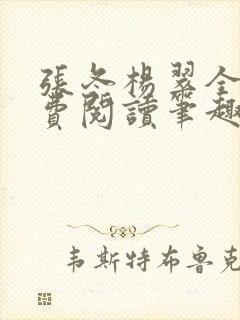 張冬楊翠全
費閱讀筆趣
韦斯特布鲁克